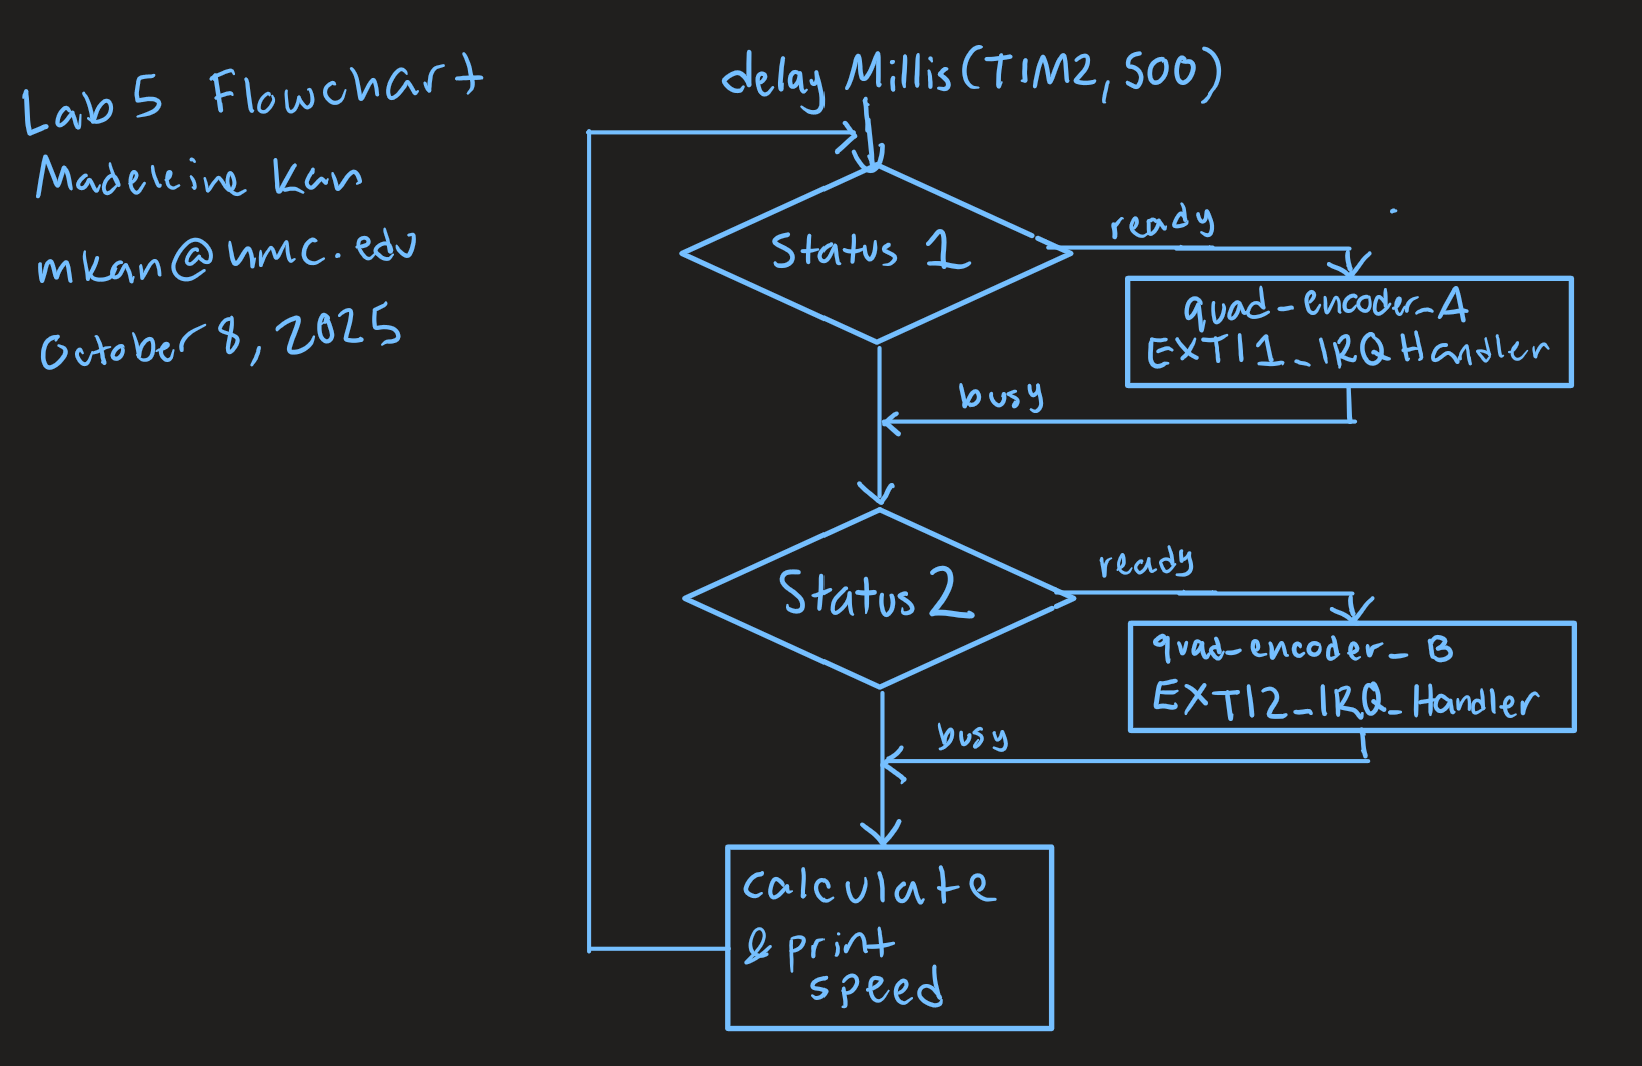 Lab 5 Flowchart
Madeleine Kan
mkan@hmc.edu
October 8, 2025
delay Millis(TIM2, 500)
Status 1
ready
quad-encoder_A
EXTI1_IRQHandler
busy
Status 2
ready
quad-encoder_B
EXTI2_IRQ_Handler
busy
calculate
& print
speed